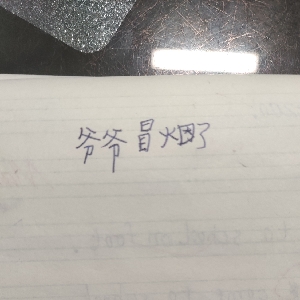 爷爷冒烟了